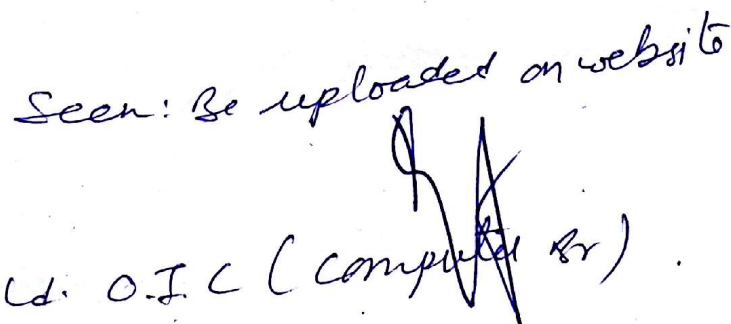 Seen: Be uploaded on website
Ld. O.I.C (Computer Br).